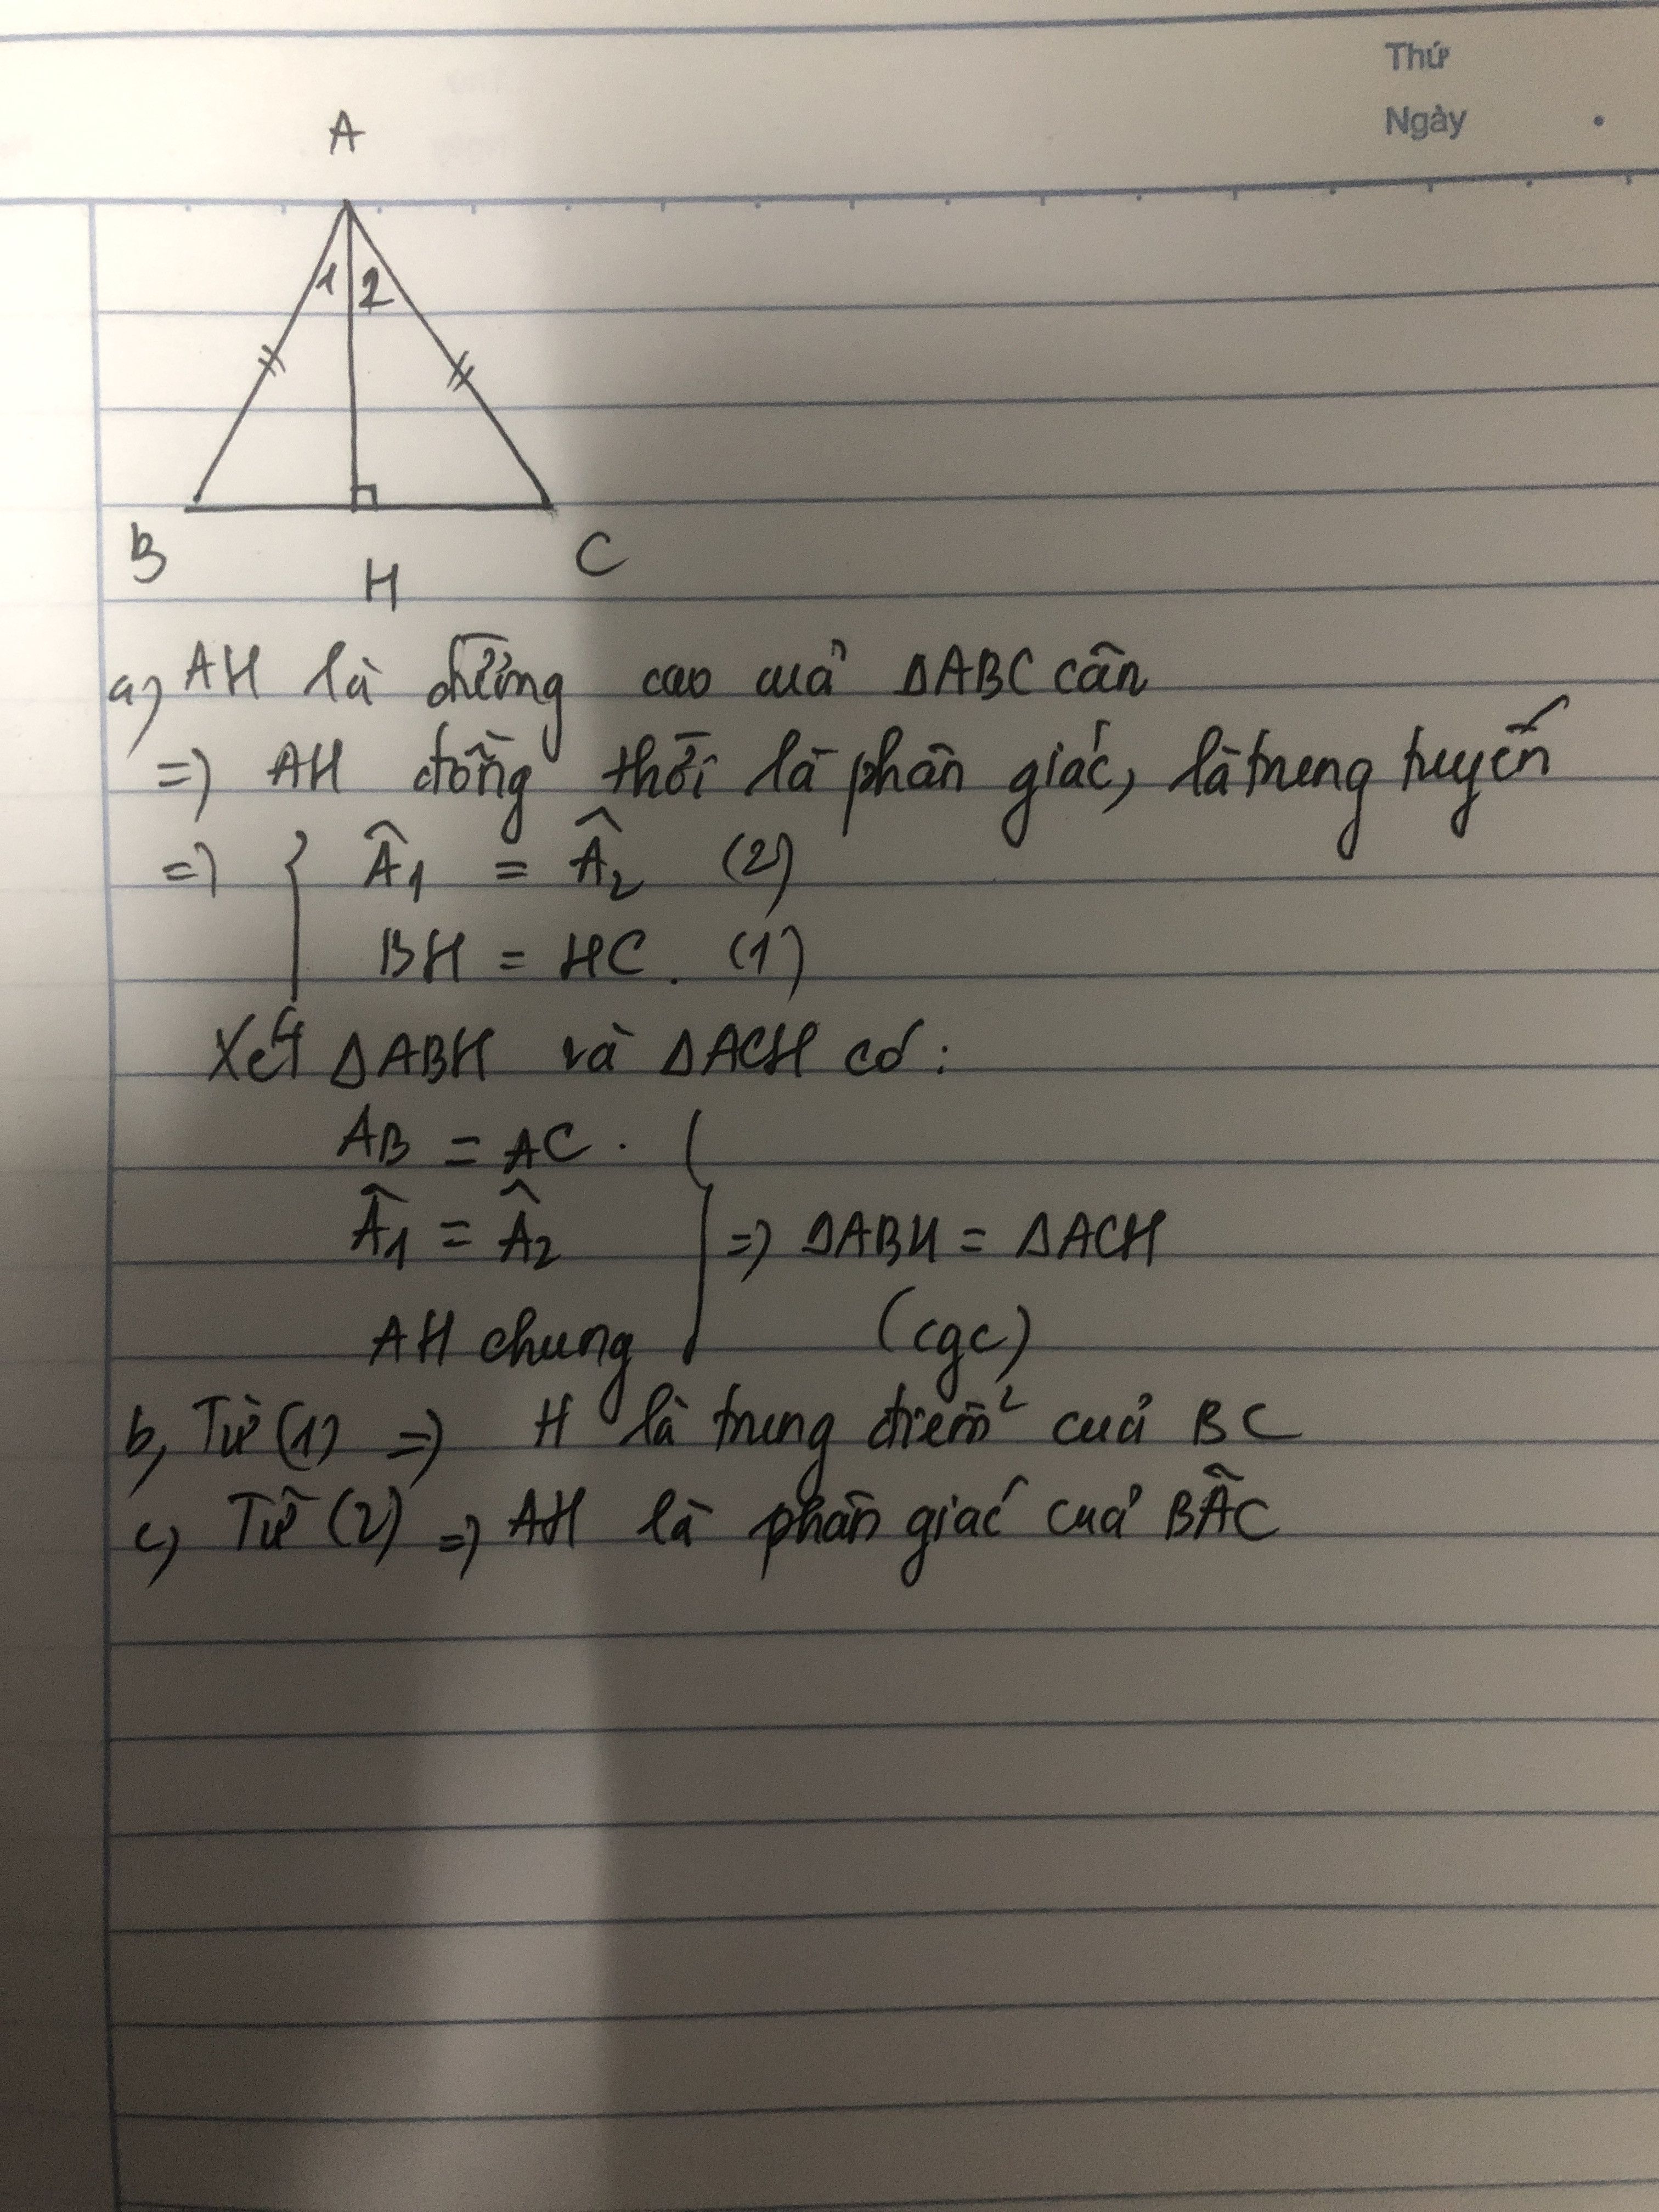 Thứ
Ngày
A
1 2
B H C
a) AH là đường cao của ΔABC cân
=) AH đồng thời là phân giác, là trung tuyến
=) { Â1 = Â2 (2)
BH = HC. (1)
Xét ΔABH và ΔACH có:
AB = AC.
Â1 = Â2 } =) ΔABH = ΔACH
AH chung (cgc)
b, Từ (1) =) H là trung điểm của BC
c) Từ (2) =) AH là phân giác của BÂC